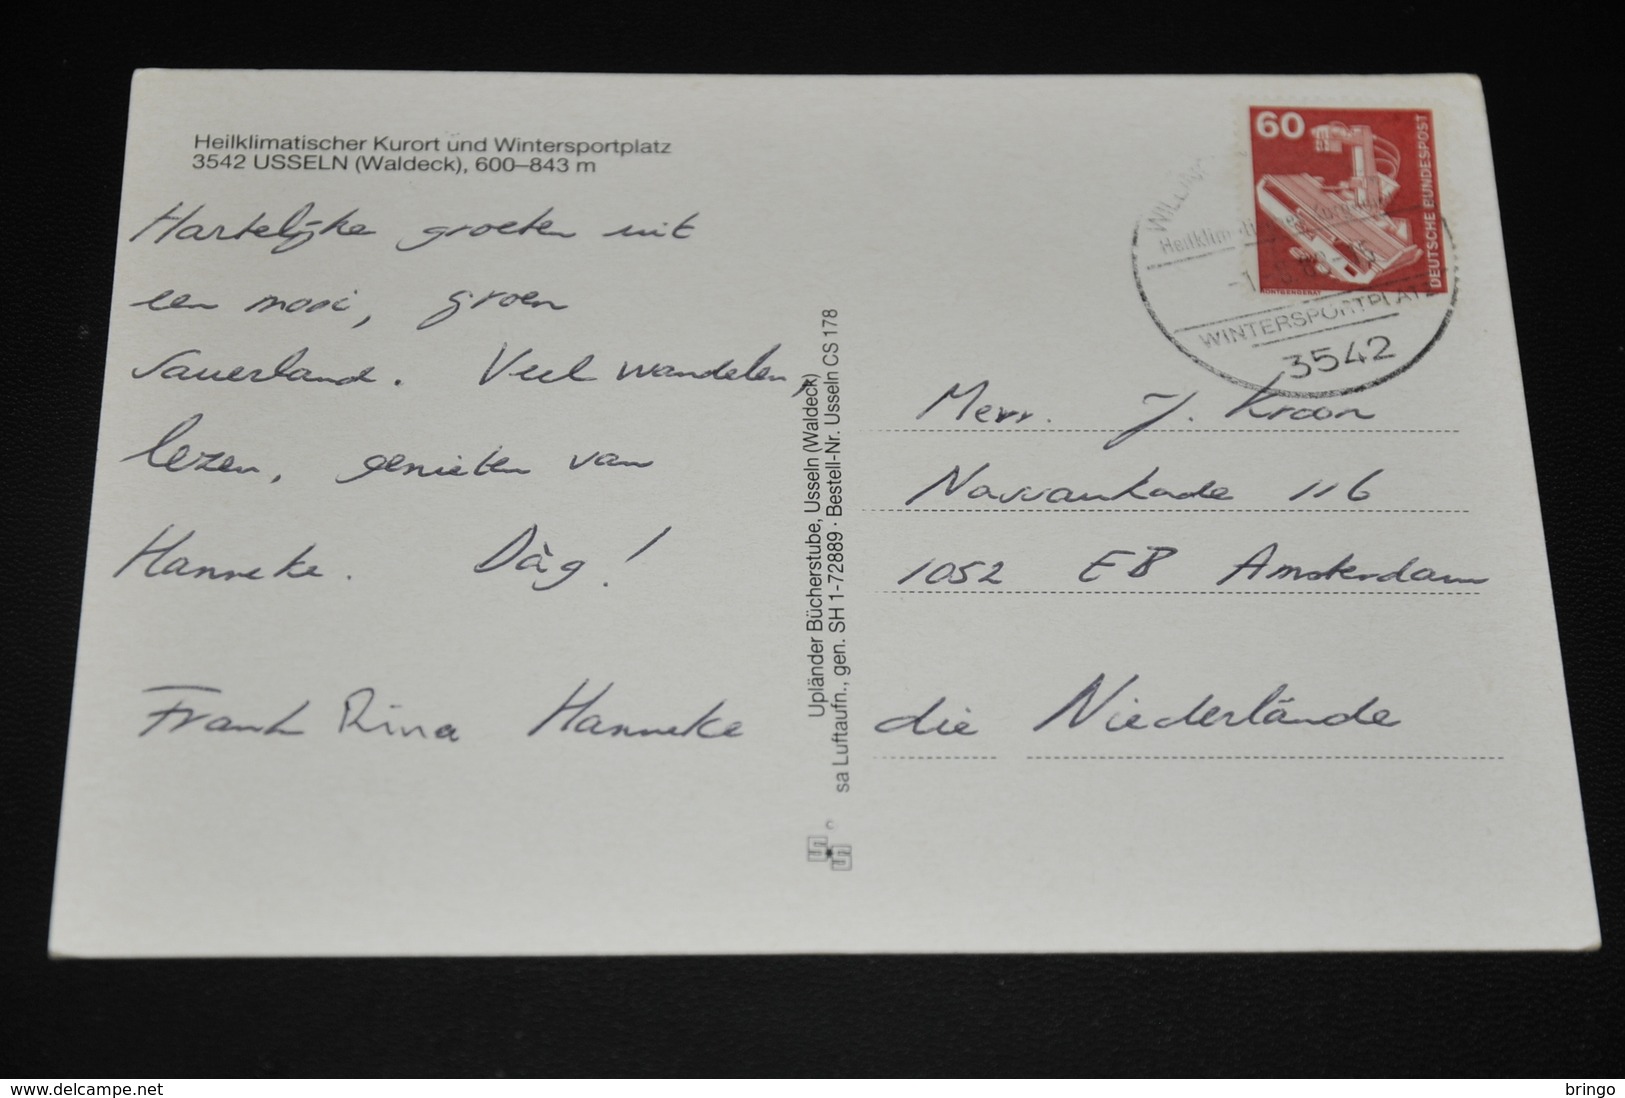 Heilklimatischer Kurort und Wintersportplatz
3542 USSELN (Waldeck), 600–843 m
Hartelijke groeten uit
een mooi, groen
Sauerland. Veel wandelen,
lezen, genieten van
Hanneke. Dàg!
Frank Rina Hanneke
Upländer Bücherstube, Usseln (Waldeck)
sa Luftaufn., gen. SH 1-72889 · Bestell-Nr. Usseln CS 178
©
60
DEUTSCHE BUNDESPOST
WINTERSPORTPLATZ
3542
Merr. J. Kroon
Nassaukade 116
1052 EB Amsterdam
die Niederlände
www.delcampe.net
bringo